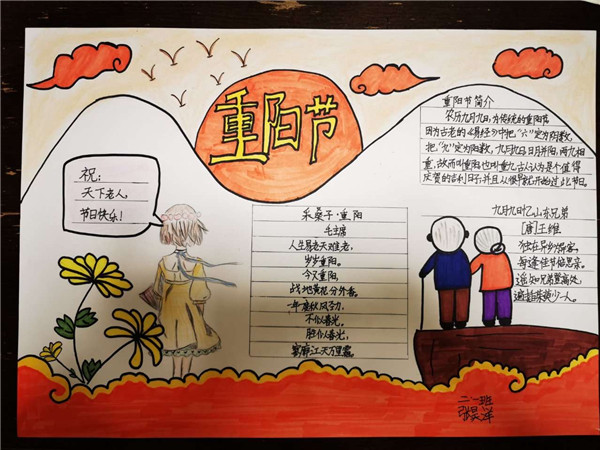 重阳节
祝：
天下老人，
节日快乐！
采桑子·重阳
毛主席
人生易老天难老，
岁岁重阳。
今又重阳，
战地黄花分外香。
一年度秋风劲，
不似春光。
胜似春光，
寥廓江天万里霜。
重阳节简介
农历九月九日，为传统的重阳节
因为古老的《易经》中把“六”定为阴数，
把“九”定为阳数，九月九日，日月并阳，两九相
重，故而叫重阳，也叫重九，古人认为是个值得
庆贺的吉利日子，并且从很早就开始过此节日。
九月九日忆山东兄弟
[唐]王维
独在异乡为异客，
每逢佳节倍思亲。
遥知兄弟登高处，
遍插茱萸少一人。
二·一班